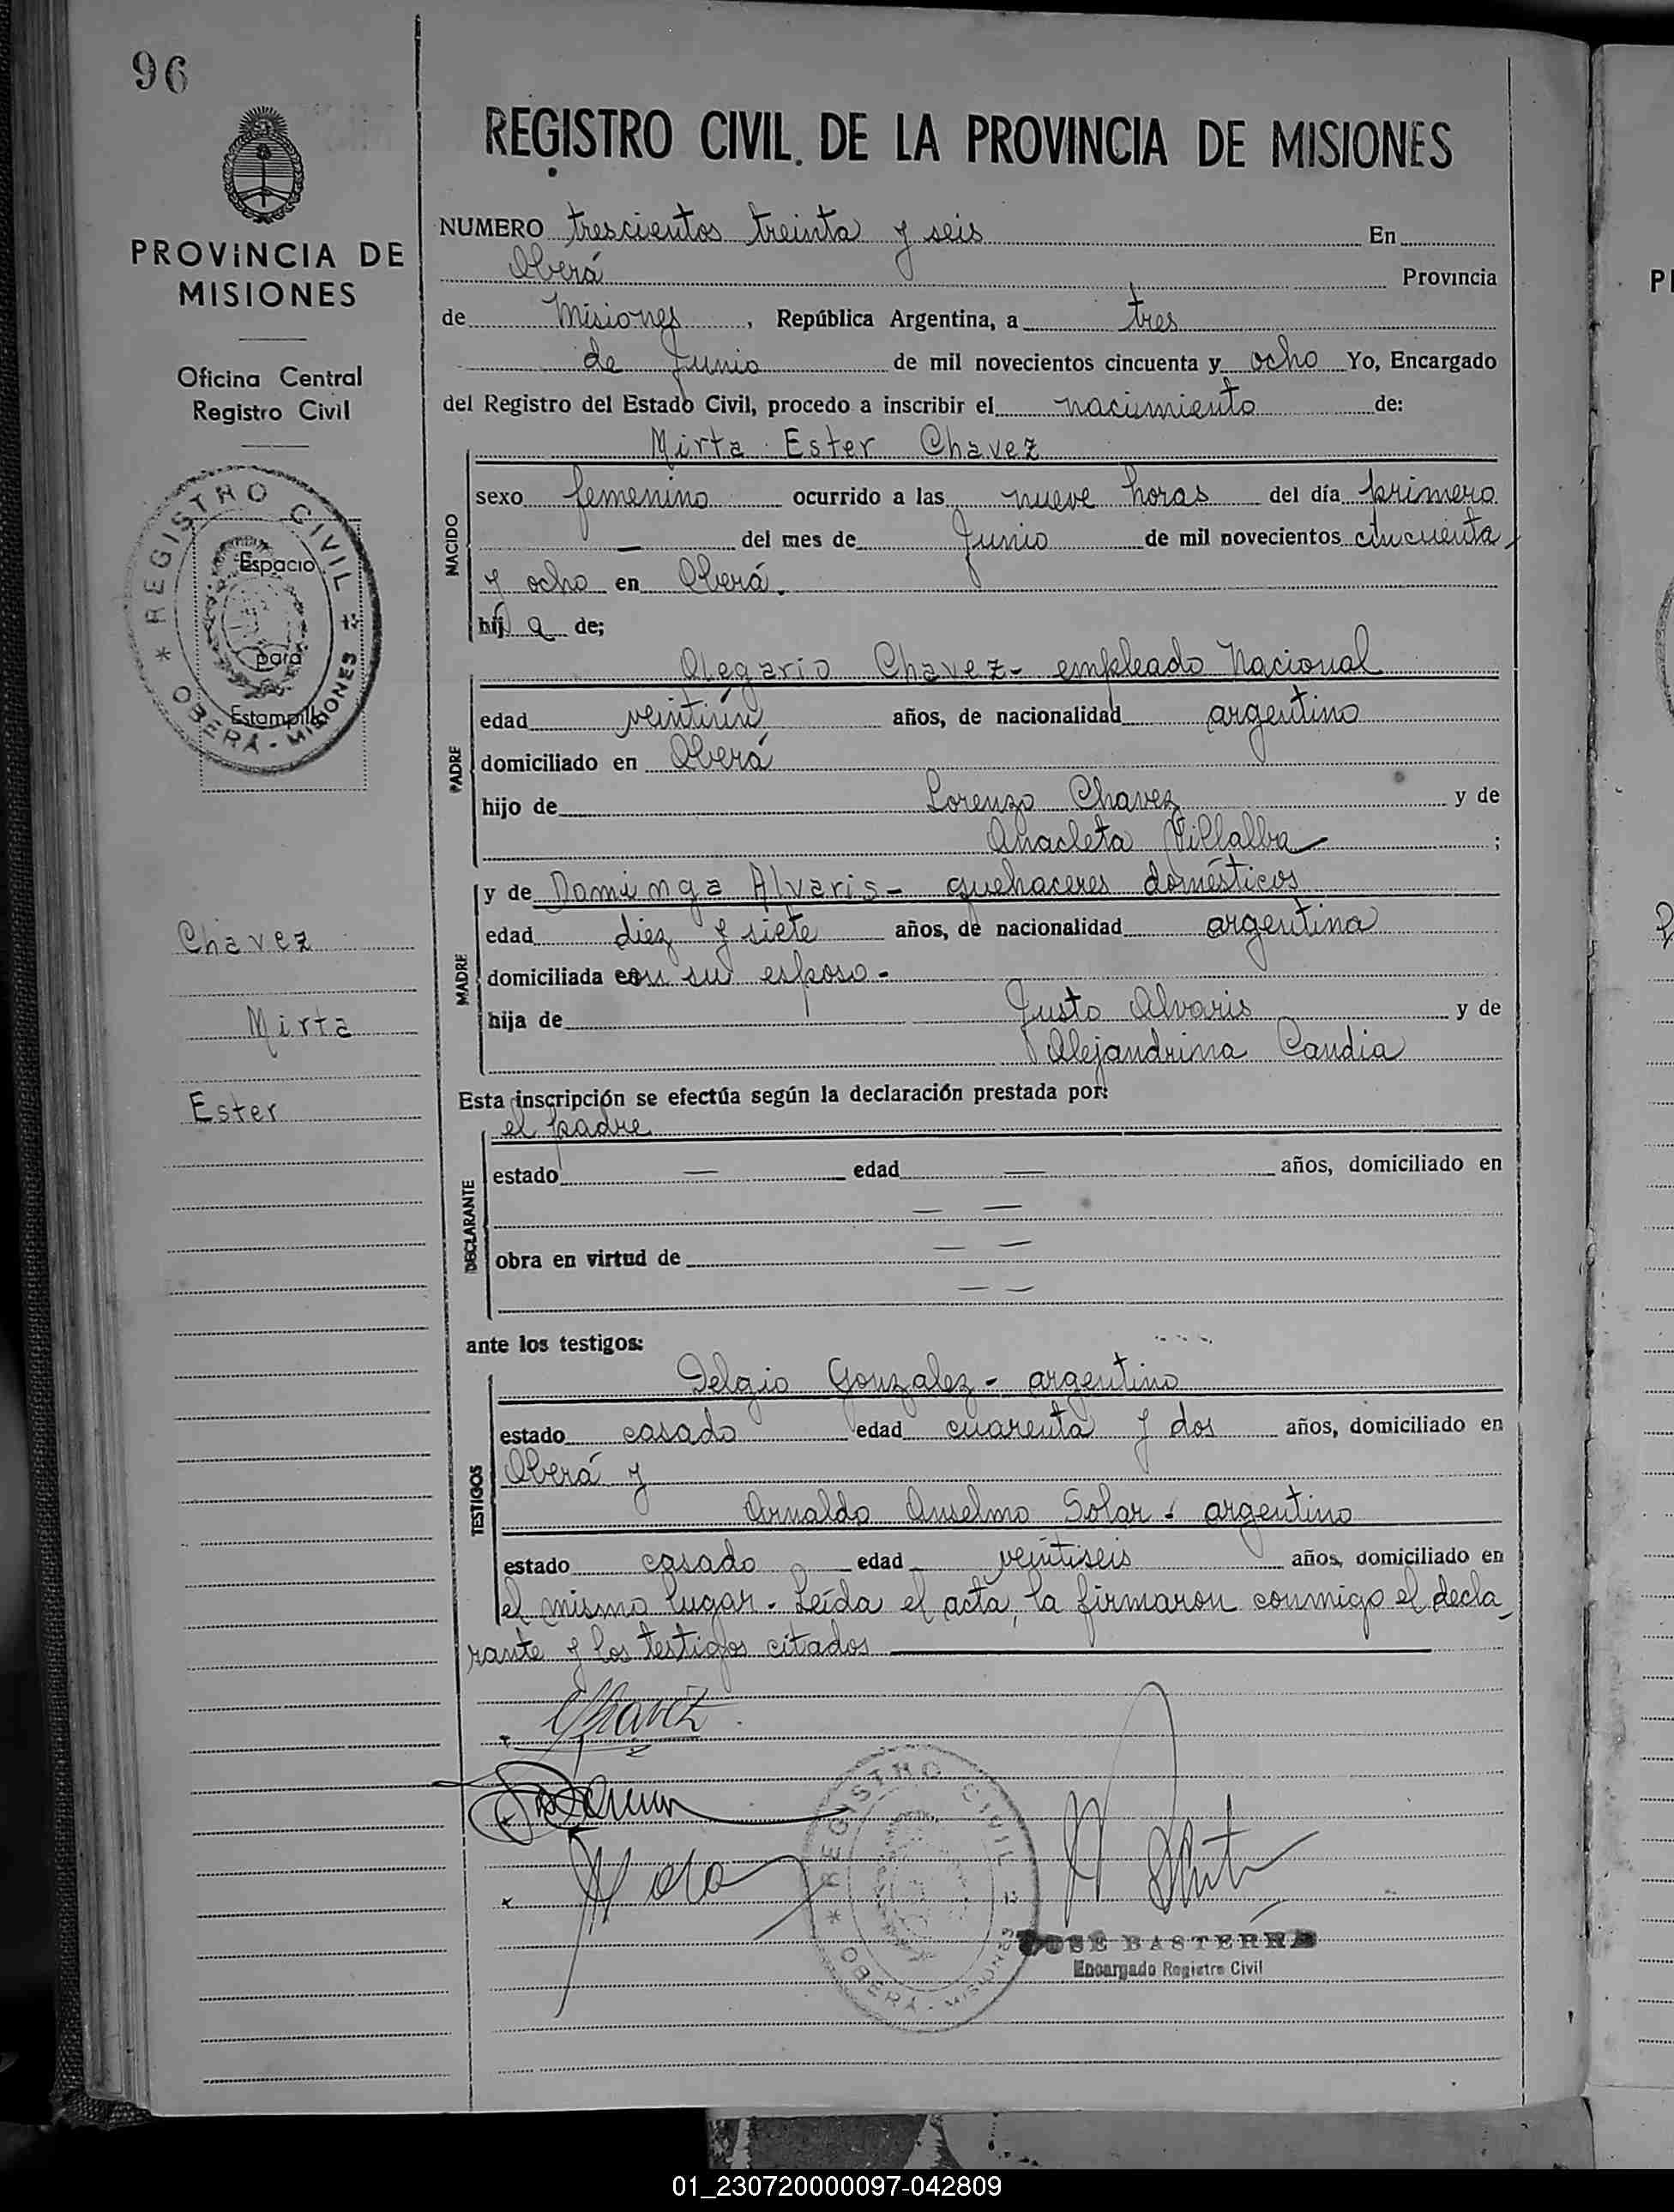 96
PROVINCIA DE
MISIONES
Oficina Central
Registro Civil
REGISTRO CIVIL
OBERÁ - MISIONES
Espacio
para
Estampilla
Chavez
Mirta
Ester
REGISTRO CIVIL DE LA PROVINCIA DE MISIONES
NUMERO trescientos treinta y seis En
Oberá Provincia
de Misiones, República Argentina, a tres
de Junio de mil novecientos cincuenta y ocho Yo, Encargado
del Registro del Estado Civil, procedo a inscribir el nacimiento de:
NACIDO
Mirta Ester Chavez
sexo femenino ocurrido a las nueve horas del día primero
— del mes de Junio de mil novecientos cincuenta
y ocho en Oberá.
hij a de;
PADRE
Olegario Chavez - empleado Nacional
edad veintiún años, de nacionalidad argentino
domiciliado en Oberá
hijo de Lorenzo Chavez y de
Anacleta Villalba ;
MADRE
y de Dominga Alvaris - quehaceres domésticos
edad diez y siete años, de nacionalidad argentina
domiciliada con su esposo -
hija de Justo Alvaris y de
Alejandrina Candia
Esta inscripción se efectúa según la declaración prestada por:
DECLARANTE
el padre
estado — edad — años, domiciliado en
— —
obra en virtud de — —
— —
ante los testigos:
TESTIGOS
Delgio Gonzalez - argentino
estado casado edad cuarenta y dos años, domiciliado en
Oberá y
Arnaldo Anselmo Solar - argentino
estado casado edad veintiseis años, domiciliado en
el mismo lugar - Leída el acta, la firmaron conmigo el decla-
rante y los testigos citados
Chavez
REGISTRO CIVIL
OBERÁ - MISIONES
JOSE BASTERRA
Encargado Registro Civil
01_230720000097-042809